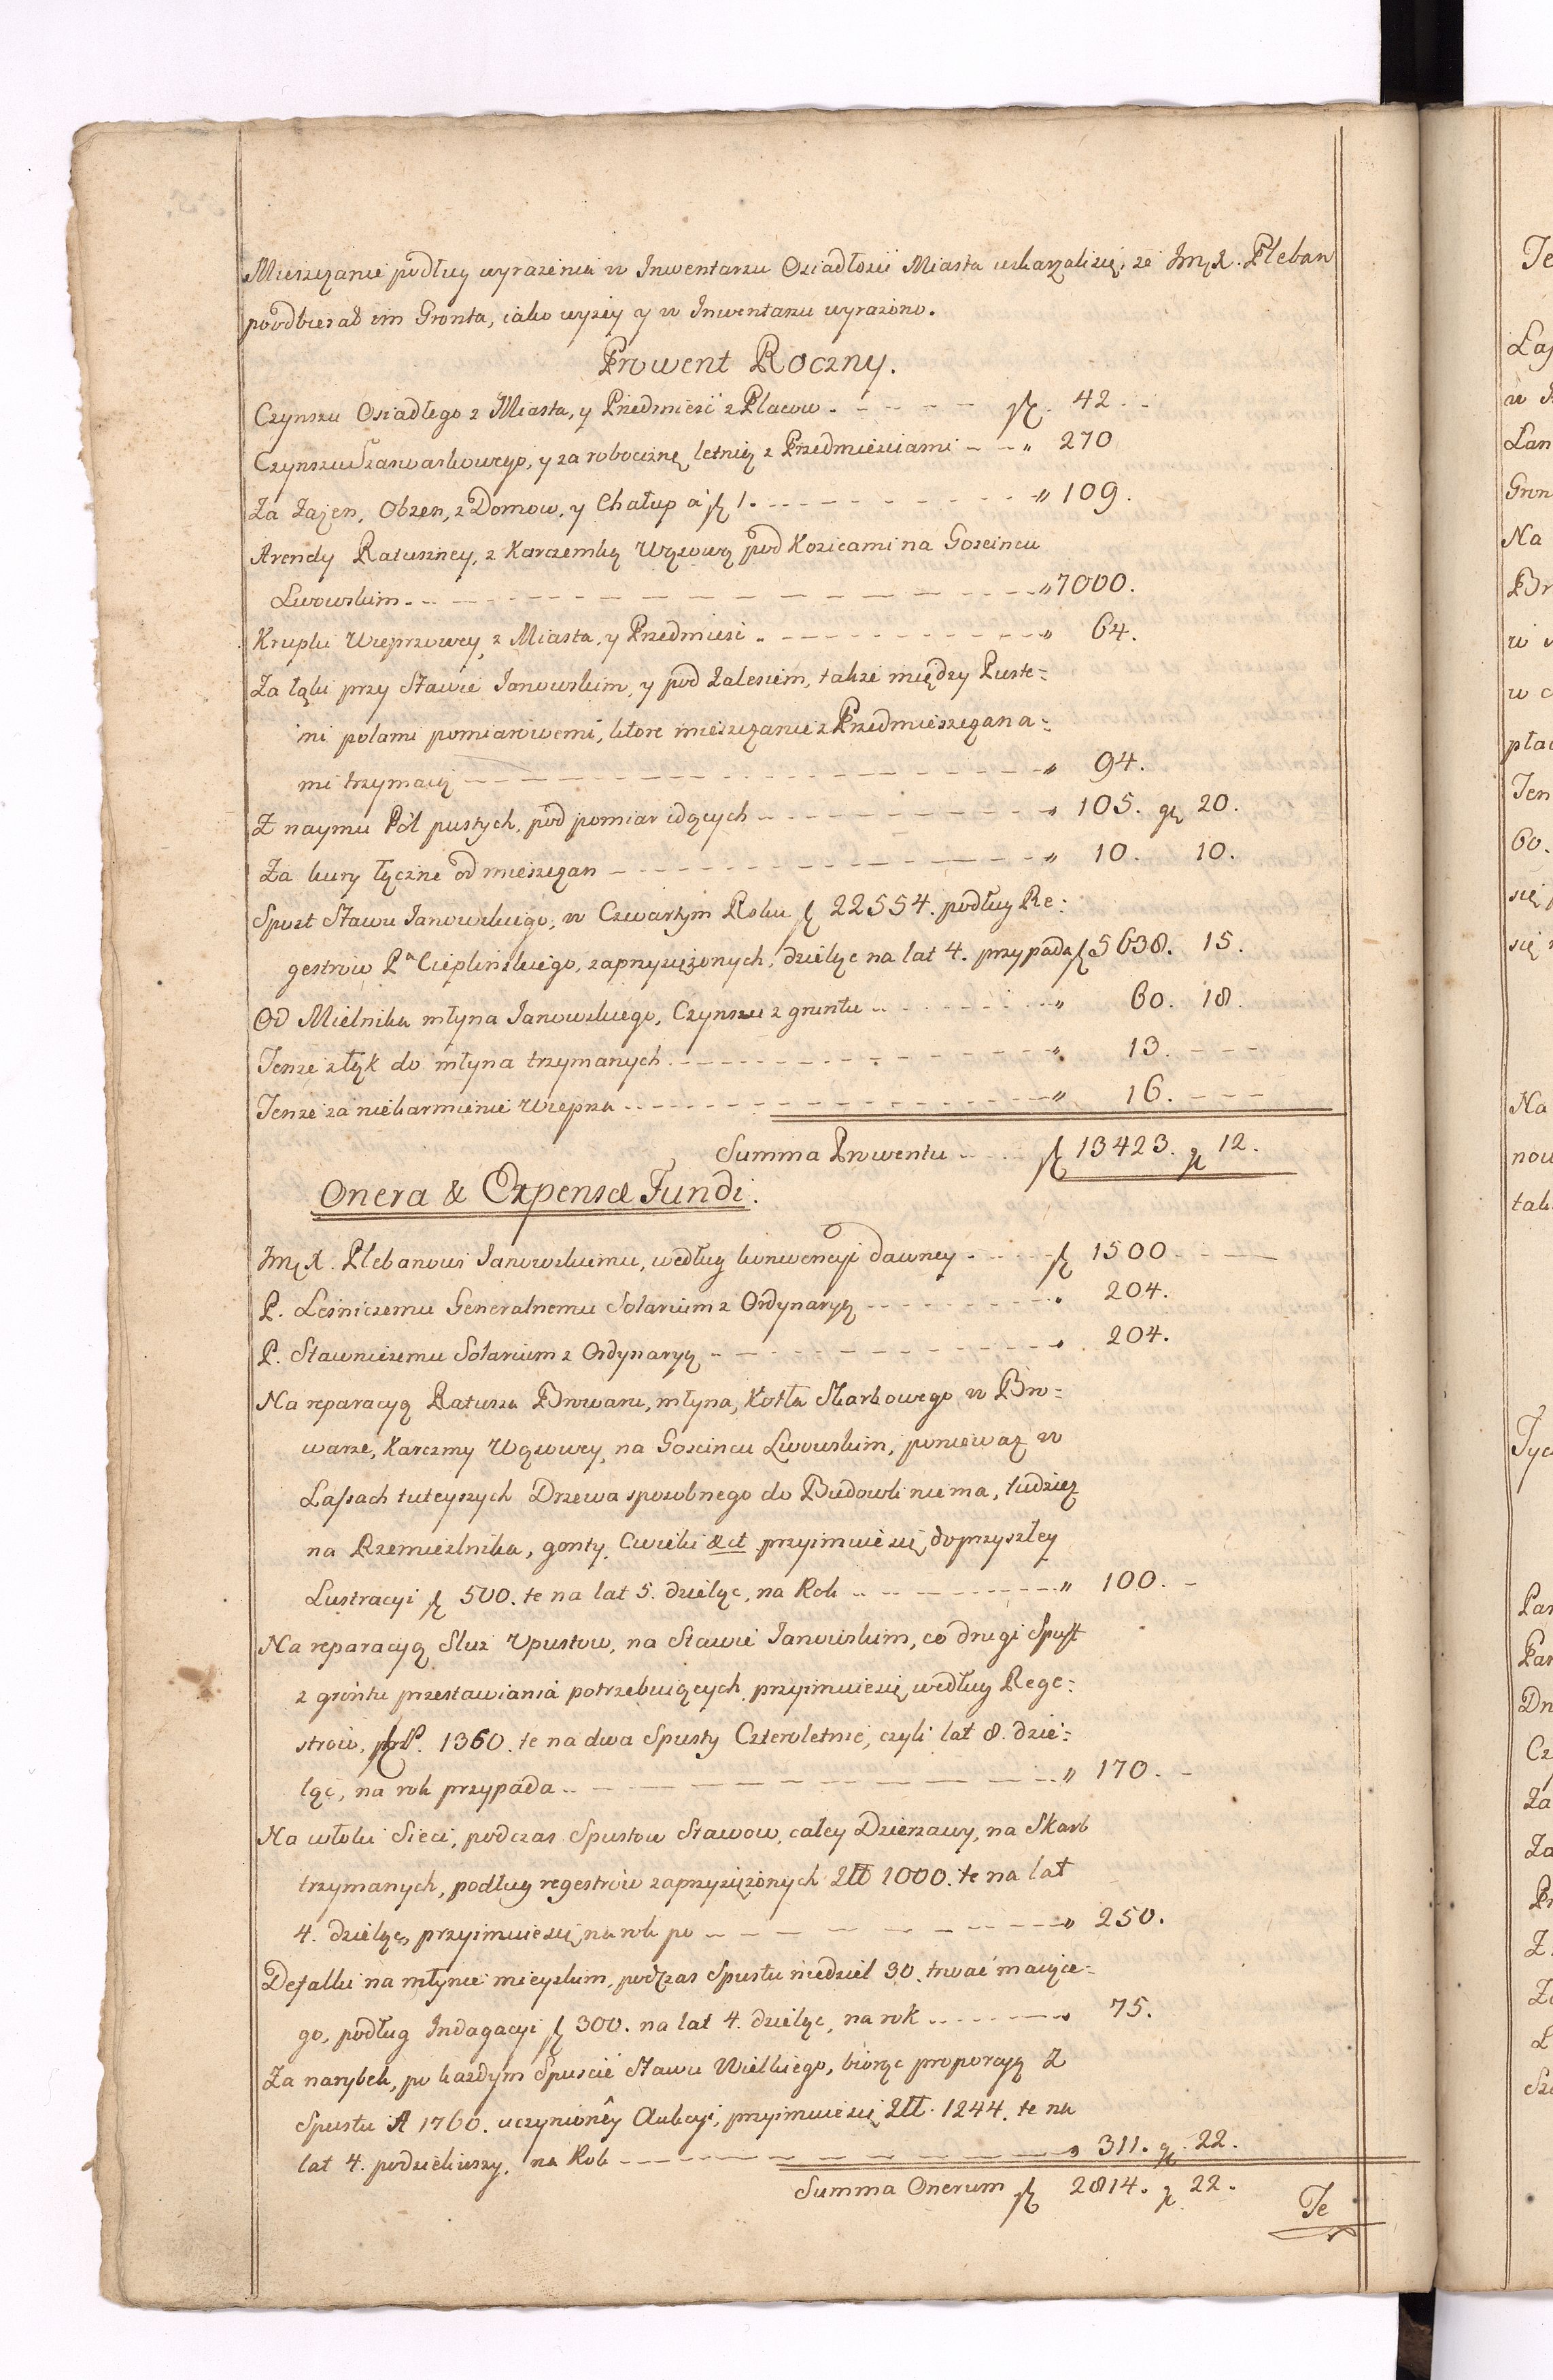 Mieszczanie podług wyrażenia w Inwentarzu Osiadłości Miasta uskarżali się, że Jmć X. Pleban
poodbierał im Gronta, iako wyżey y w Inwentarzu wyrażono.
Prowent Roczny.
Czynszu Osiadłego z Miasta, y Przedmieść z Placow - - - - - zł. 42.
Czynszu Szarwarkowego, y za robociznę letnią z Przedmieściami - - " 270
Za Zajen, Obzen, z Domow, y Chałup a zł 1. - - - - - - " 109.
Arendy Ratuszney, z Karczemką Wązową pod Kozicami na Goscincu
Lwowskim. - - - - - - - " 7000.
Kruplu Wieprzowey z Miasta, y Przedmieść. - - - - - - " 64.
Za łąki przy Stawie Janowskim, y pod Zalesiem, także między Puste=
mi polami pomiarowemi, ktore mieszczanie z Przedmieszczana=
mi trzymaią - - - - - - - " 94.
Z naymu Pól pustych, pod pomiar idących - - - - - - " 105. gr 20.
Za kury łączne od mieszczan - - - - - - " 10. 10.
Spust Stawu Janowskiego, w Czwartym Roku zł 22554. podług Re:
gestrow Pa Cieplińskiego, zaprzysiężonych, dzieląc na lat 4. przypada zł 5638. 15.
Od Mielnika młyna Janowskiego, Czynszu z gruntu - - - - - " 60. 18.
Tenże z łąk do młyna trzymanych - - - - - - " 13. - - -
Tenże za niekarmienie Wieprza - - - - - - " 16. - - -
Summa Prowentu - - - - zł 13423. gr 12.
Onera & Expensæ Fundi.
Jmć X. Plebanowi Janowskiemu, według konwencyi dawney - - - - zł 1500 - - -
P. Leśniczemu Generalnemu Solarium z Ordynaryą - - - - - " 204.
P. Stawniczemu Solarium z Ordynaryą - - - - - - " 204.
Na reparacyą Ratusza Browaru, młyna, Kotła Skarbowego w Bro=
warze, Karczmy Wązowey na Goscincu Lwowskim, poniewaz w
Lassach tuteyszych Drzewa sposobnego do Budowli nie ma, tudziez
na Rzemieslnika, gonty, Cwieki &ct przyimuie się do przyszłey
Lustracyi zł 500. te na lat 5. dzieląc, na Rok - - - - - " 100. -
Na reparacyą Sluz Upustow, na Stawie Janowskim, co drugi Spust
z grontu przestawiania potrzebuiących, przyimuie się według Rege:
strow, 1360. te na dwa Spusty Czteroletnie, czyli lat 8. dzie:
ląc, na rok przypada - - - - - - - " 170. -
Na włoki Sieci, podczas Spustow Stawow, całey Dzierzawy, na Skarb
trzymanych, podług regestrow zaprzysiężonych Złł 1000. te na lat
4. dzieląc, przyimuie się na rok po - - - - - - " 250.
Defalki na młynie mieyskim, podczas Spustu niedziel 30. trwać maiące=
go, podług Indagacyi zł 300. na lat 4. dzieląc, na rok - - - - - " 75.
Za narybek, po każdym Spuscie Stawu Wielkiego, biorąc proporcyą Z
Spustu A 1760. uczynioney Aukcyi, przyimuie się Złł. 1244. te na
lat 4. podzieliwszy, na Rok - - - - - - " 311. gr. 22.
Summa Onerum zł 2814. gr 22.
Te